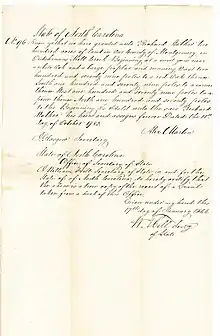 State of North Carolina
No 196 Know ye that we have granted unto Zechariah Mabbis two
hundred acres of land in our County of Montgomery on
Dutchmans Creek Beginning at a
white oak and a large and running East two
hundred and seventy nine poles to a red oak thence
north one hundred and seventy nine poles to a corner
thence West one hundred and seventy nine poles to a
pine thence South one hundred and seventy poles
to the Beginning To hold unto the said Zechariah
his heirs and assigns forever Dated the 10th
day of October 1783
Alex Martin
J Glasgow Secretary
State of North Carolina
Office of Secretary of State
I William Hill Secretary of State in and for the
State of North Carolina, do hereby certify that
the above is a true copy of the record of a Grant
taken from a book of this Office
Given under my hand this
17th day of January 1844
W. Hill Secy
of State